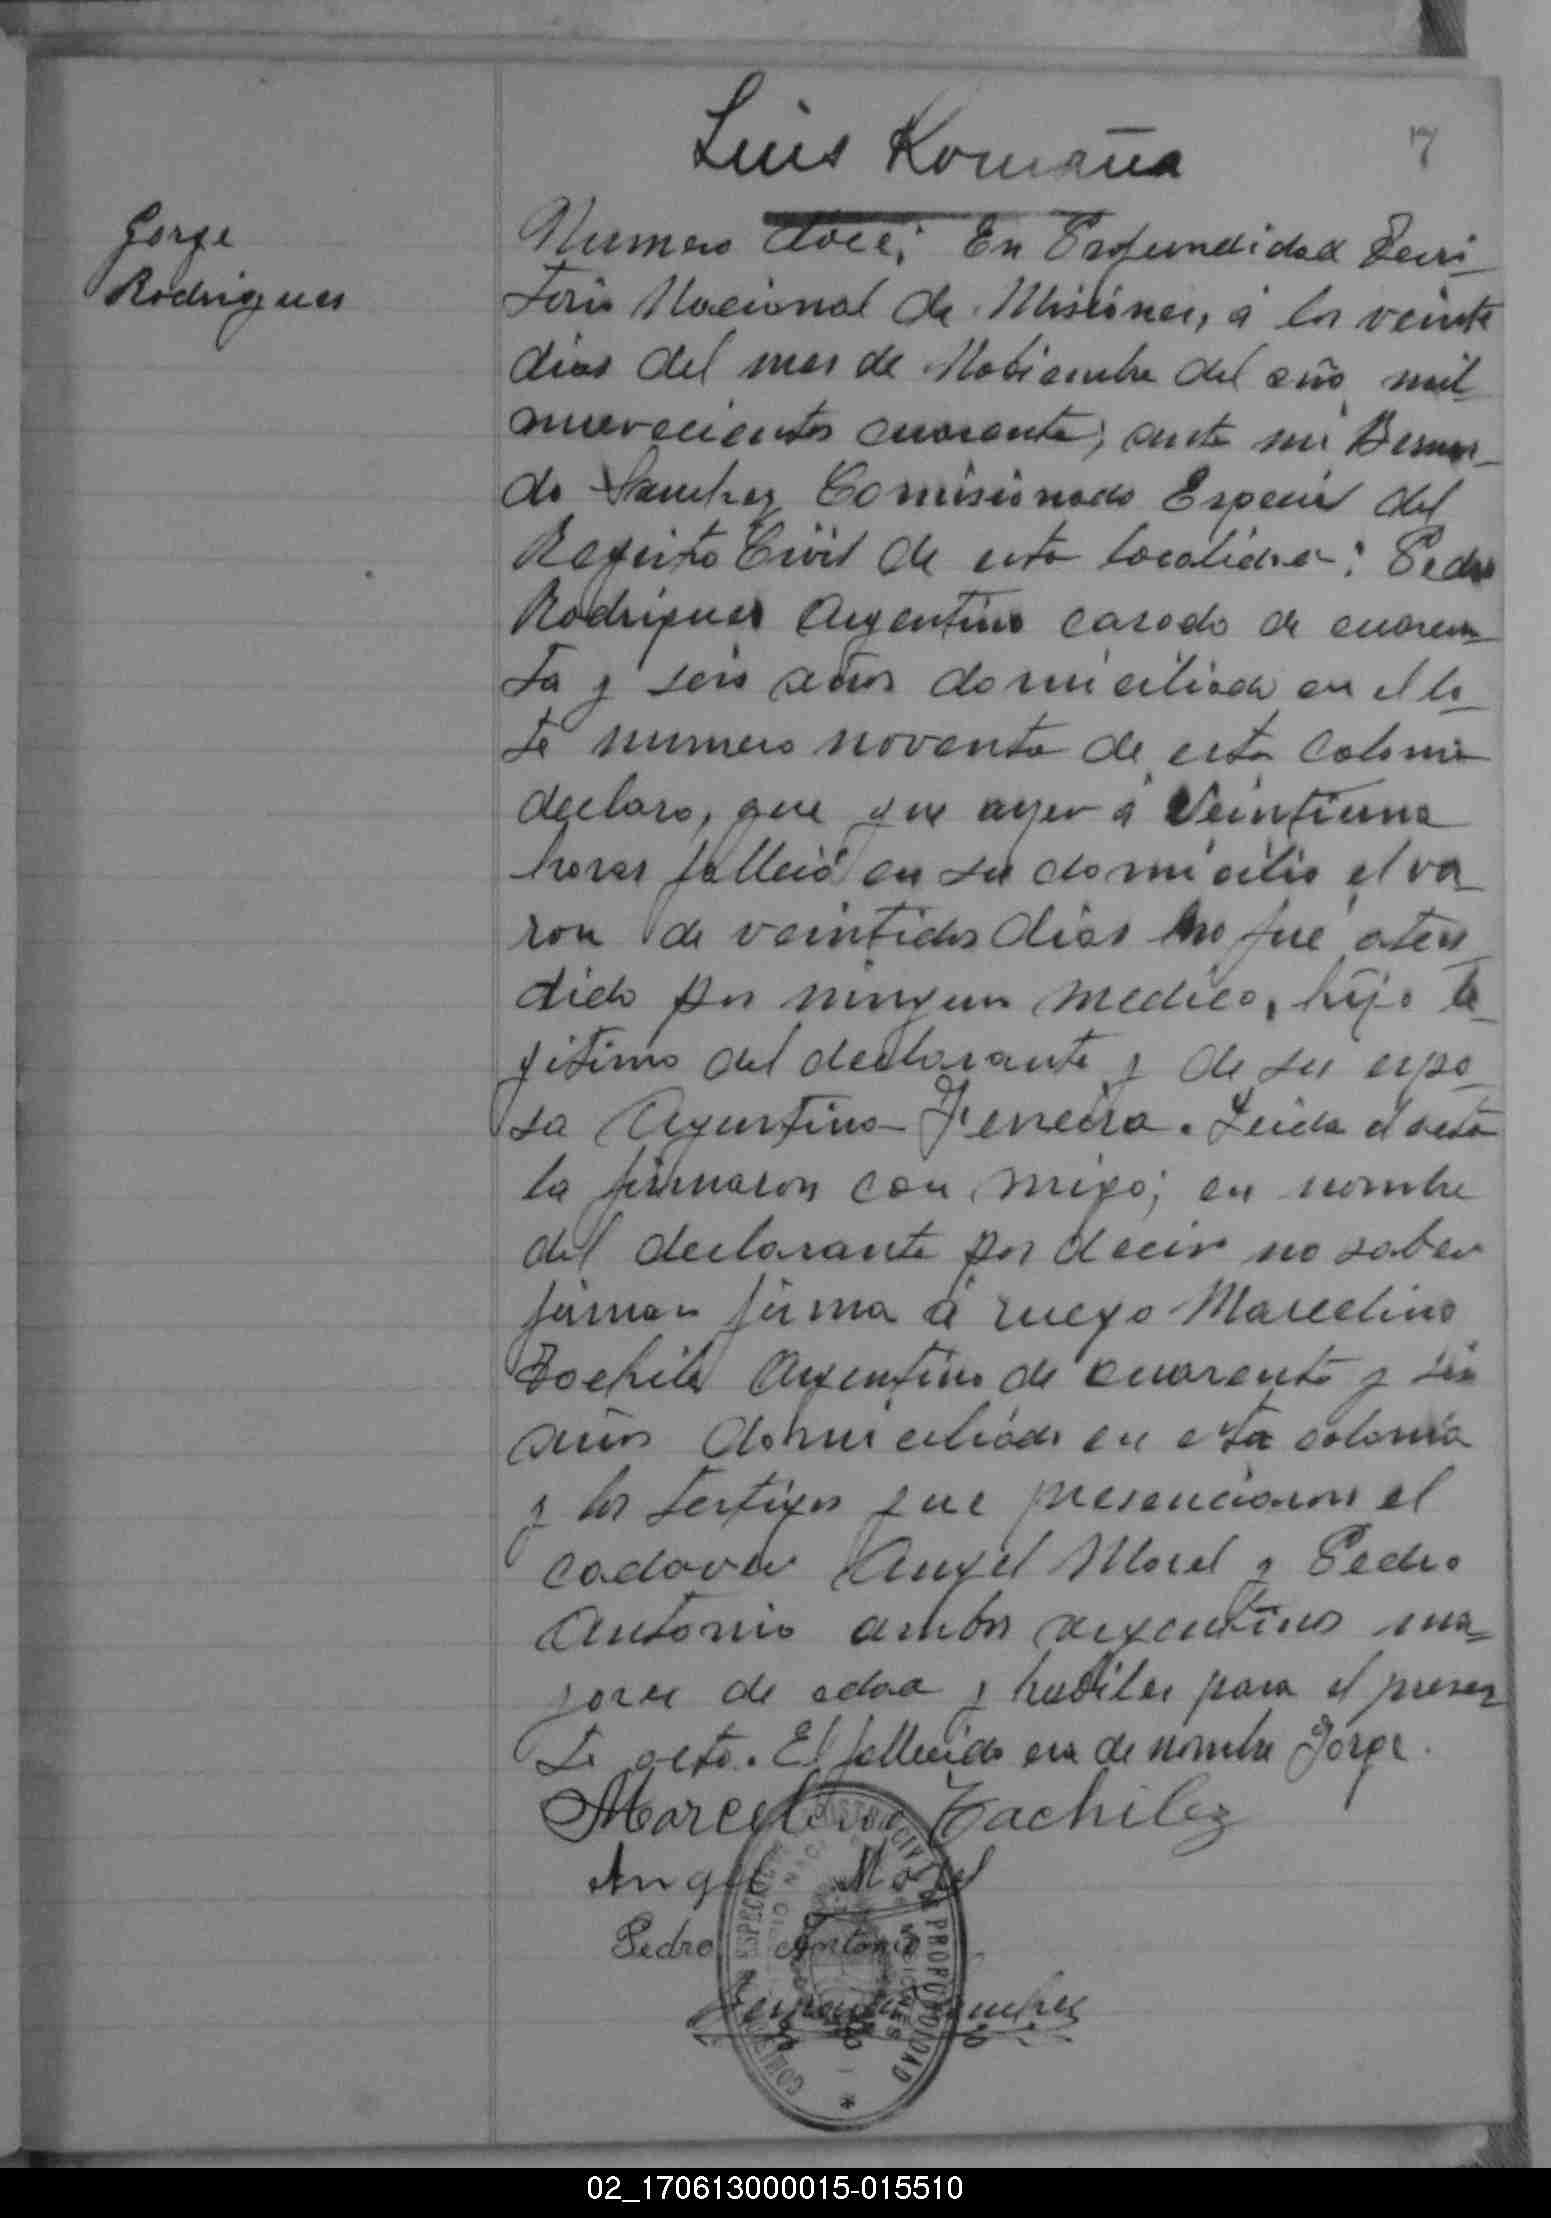 Luis Romaña
7
Jorge
Rodrigues
Numero doce; En Profundidad Terri-
torio Nacional de Misiones, á los veinte
dias del mes de Nobiembre del año mil
nuevecientos cuarenta; ante mi Bernar-
do Sanchez Comisionado Especial del
Registro Civil de esta localidad: Pedro
Rodrigues Argentino casado de cuaren-
ta y seis años domiciliado en el lo-
te numero noventa de esta Colonia
declaro, que que ayer á Veintiuna
horas falleció en su domicilio el va-
ron de veintidos dias no fué aten-
dido por ningun medico, hijo le-
gitimo del declarante y de su espo-
sa Agustina Ferreira. Leida el acta
la firmaron con migo; en nombre
del declarante por decir no saber
firmar firma á ruego Marcelino
Tochilez Argentino de cuarenta y seis
años domiciliado en esta colonia
y los testigos que presenciaron el
cadaver Angel Morel y Pedro
Antonio ambos argentinos ma-
yores de edad y habiles para el presen
te acto. El fallecido era de nombre Jorge.
Marcelino Tachilez
Angel Morel
Pedro Antonio
Bernardo Sanchez
COMISION ESPECIAL REGISTRO CIVIL DE PROFUNDIDAD
02_170613000015-015510